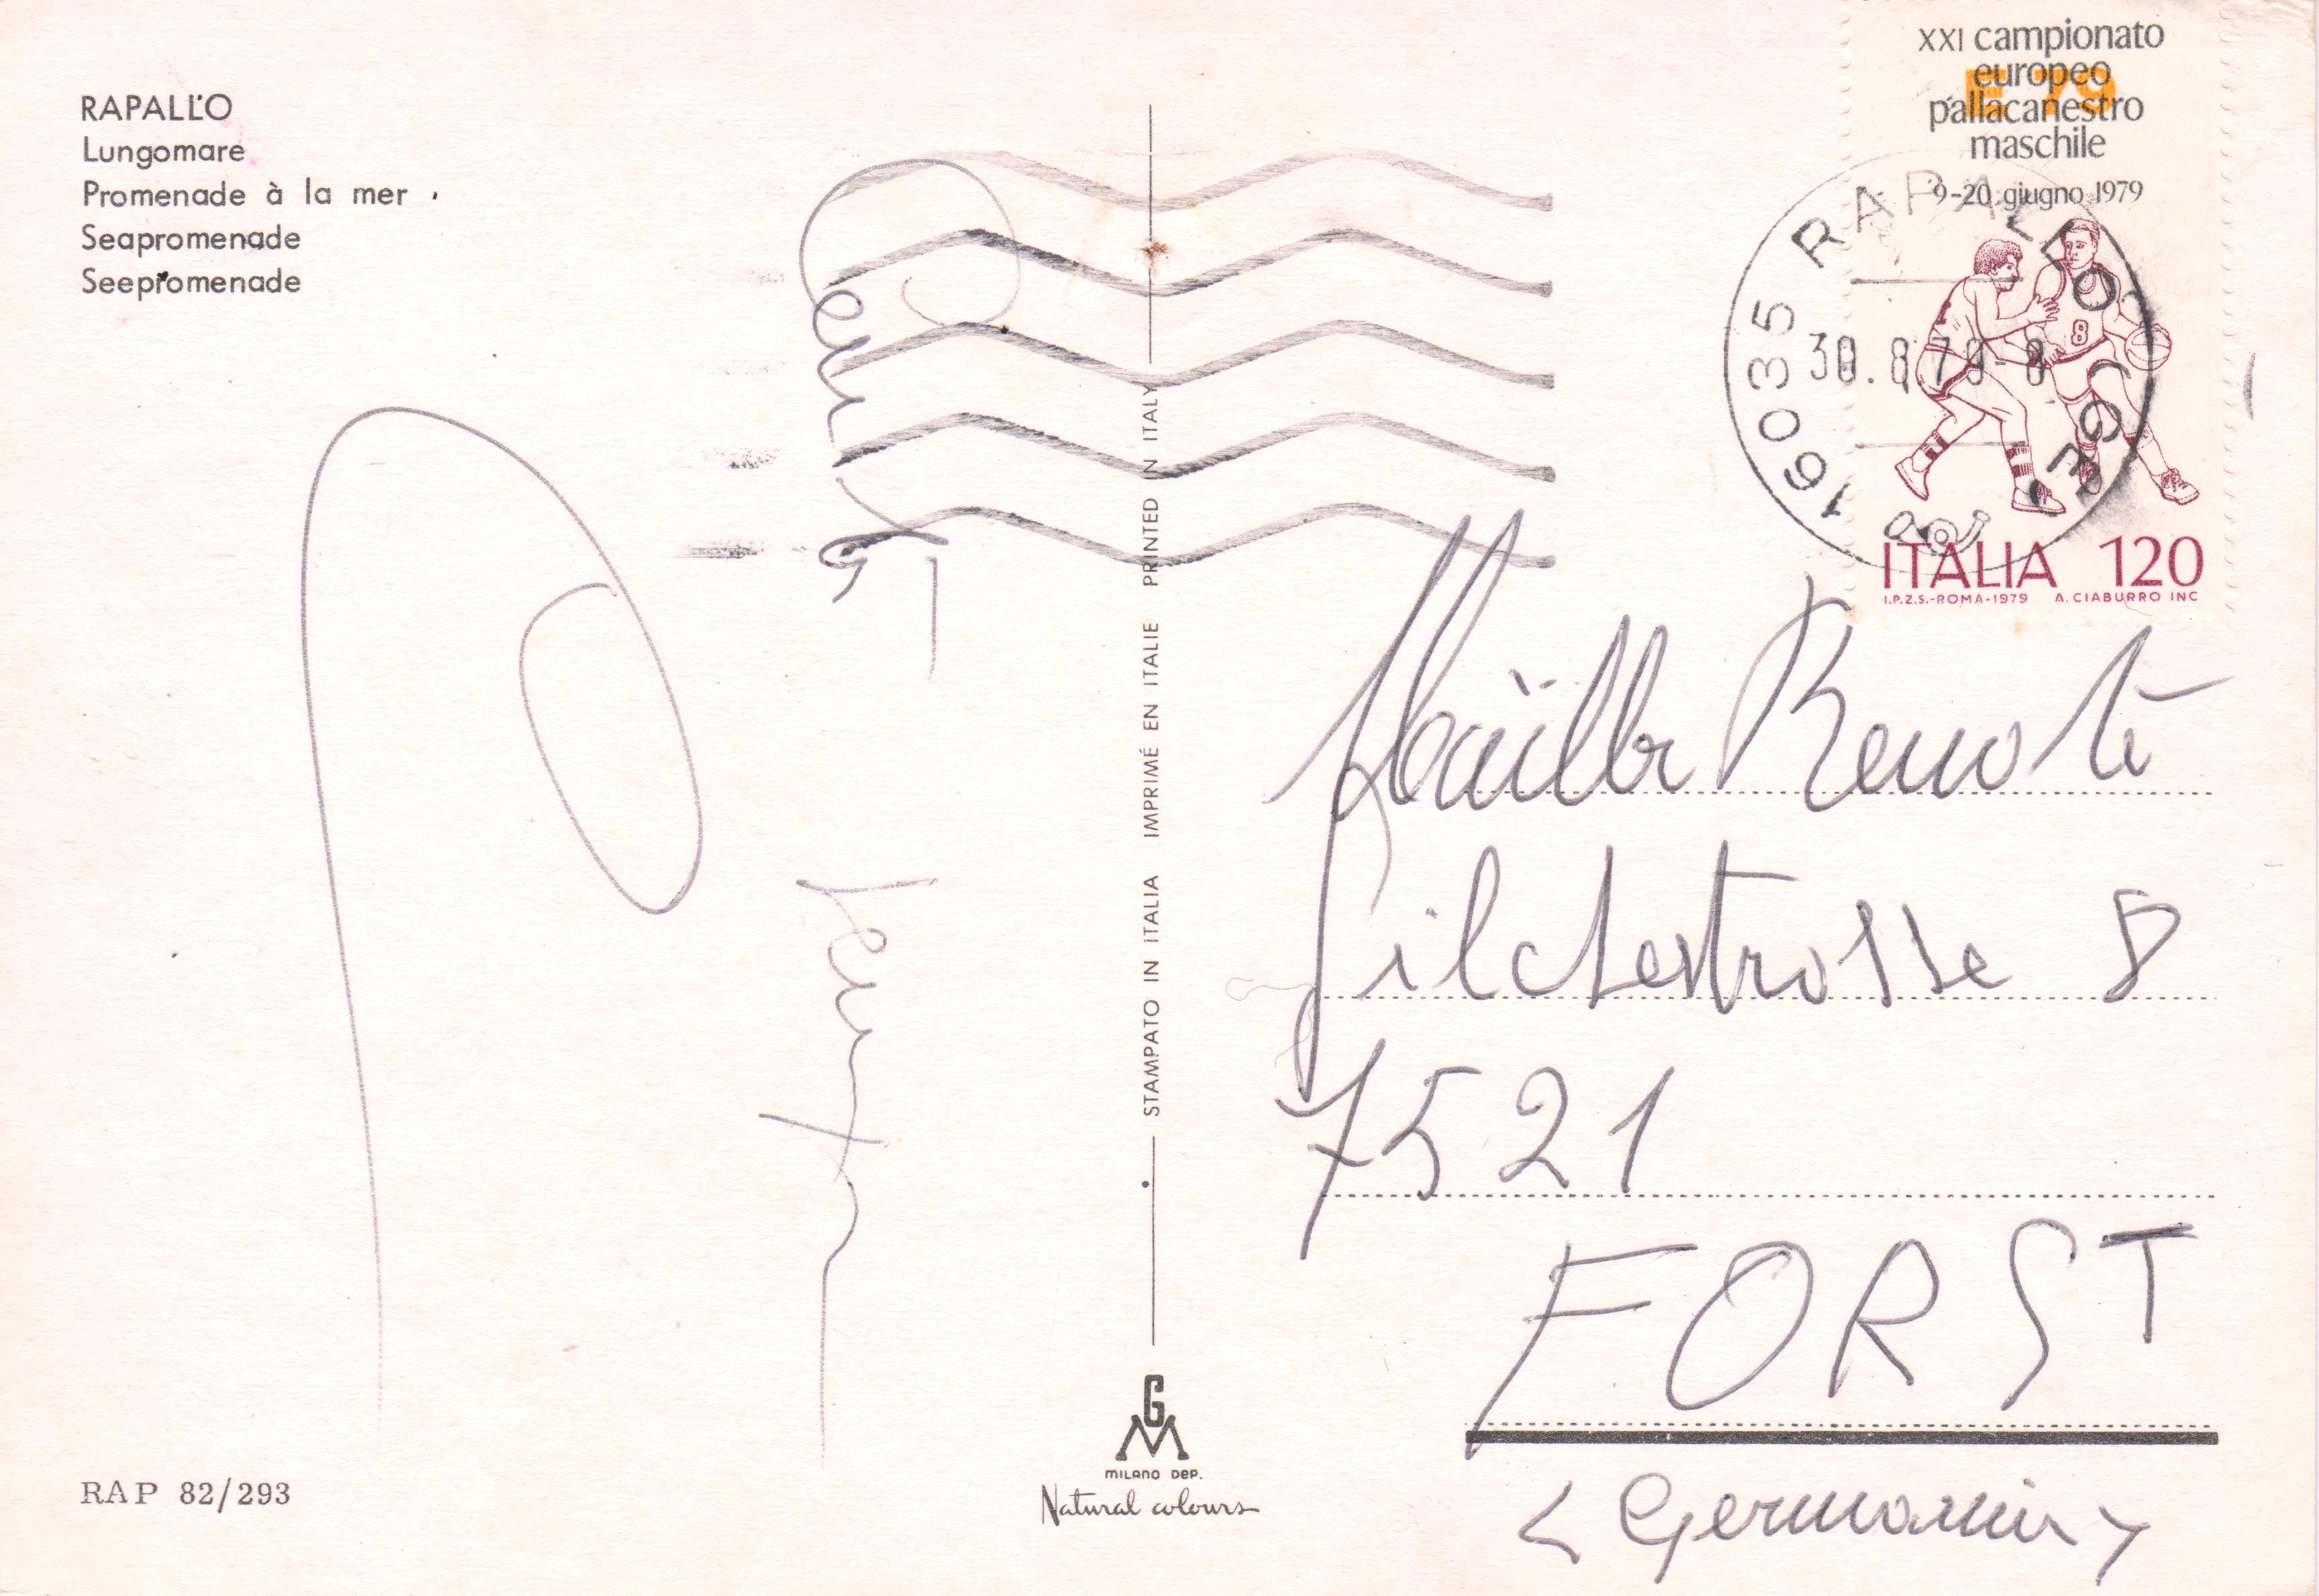 RAPALLO
Lungomare
Promenade à la mer
Seapromenade
Seepromenade
XXI campionato
europeo
E 79
pallacanestro
maschile
9-20 giugno 1979
8
ITALIA 120
I.P.Z.S.-ROMA-1979 A. CIABURRO INC
16035 RAPALLO (GE)
30.8.79-8
STAMPATO IN ITALIA IMPRIMÉ EN ITALIE PRINTED IN ITALY
Renate
8
7521
FORST
(Germania)
GM
MILANO DEP.
Natural colours
RAP 82/293